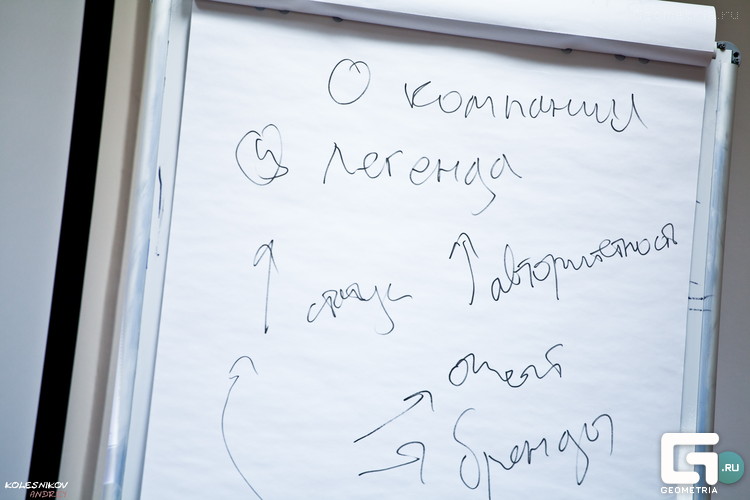 О компании
4 легенда
↑ статус ↑ авторитетность
опыт
бренды
KOLESNIKOV
ANDREY
GEOMETRIA
.RU